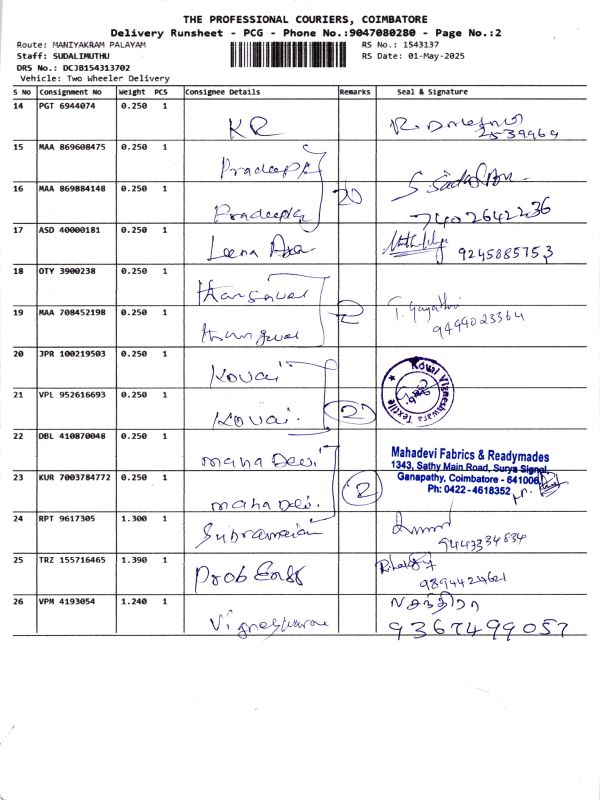 THE PROFESSIONAL COURIERS, COIMBATORE
Delivery Runsheet - PCG - Phone No.:9047080280 - Page No.:2
Route: MANIYAKRAM PALAYAM RS No.: 1543137
Staff: SUDALIMUTHU RS Date: 01-May-2025
DRS No.: DCJB154313702
Vehicle: Two Wheeler Delivery
S No Consignment No Weight PCS Consignee Details Remarks Seal & Signature
14 PGT 6944074 0.250 1 KR
2539969
15 MAA 869608475 0.250 1 Pradeep
16 MAA 869884148 0.250 1 Pradeep
7402642236
17 ASD 40000181 0.250 1 Leena 9245885753
18 OTY 3900238 0.250 1 T. Gayathri
19 MAA 708452198 0.250 1 9499023364
20 JPR 100219503 0.250 1 Kovai
21 VPL 952616693 0.250 1 Kovai. 2
Kovai Vigneshwara Textile
22 DBL 410870048 0.250 1 maha Devi
Mahadevi Fabrics & Readymades
1343, Sathy Main Road, Surya Signal,
23 KUR 7003784772 0.250 1 maha Devi. 2
Ganapathy, Coimbatore - 641006
Ph: 0422 - 4618352
24 RPT 9617305 1.300 1 Subramaian
9443334834
25 TRZ 155716465 1.390 1
9894424621
26 VPM 4193054 1.240 1 Vigneshwara வசந்திரா
9367499057